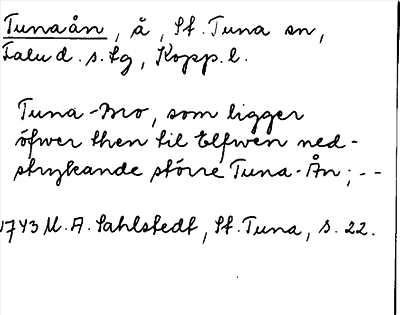 Tunaån, å, St. Tuna sn,
Falu d. s. lg, Kopp. l.
Tuna-Mo, som ligger
öfwer then til Elfwen ned-
strykande större Tuna-Ån; --
1743 M. A. Sahlstedt, St. Tuna, s. 22.